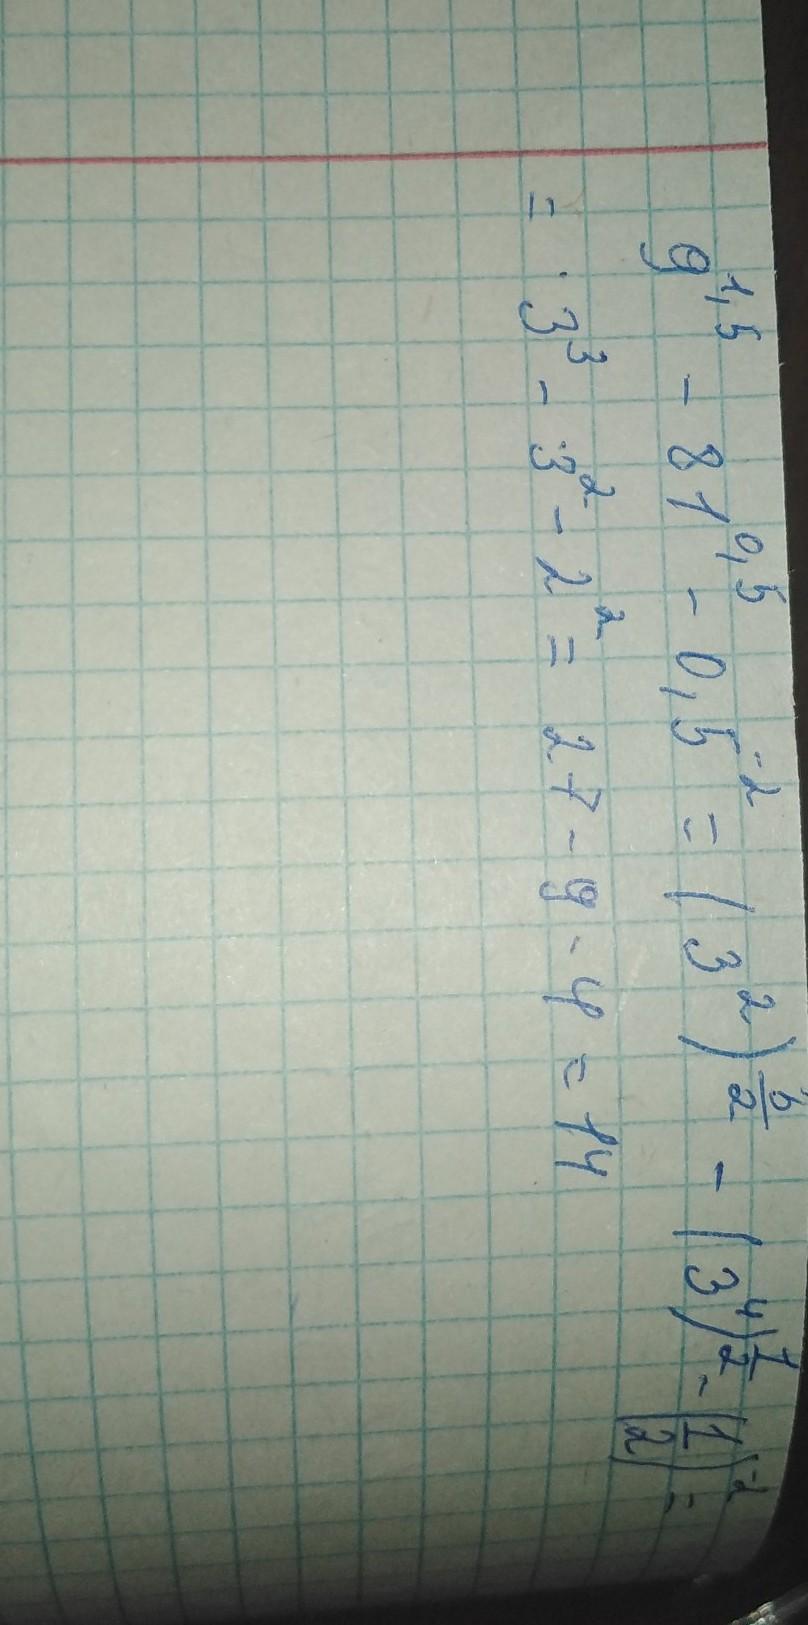 9^{1,5} - 81^{0,5} - 0,5^{-2} = (3^2)^{\frac{3}{2}} - (3^4)^{\frac{1}{2}} - (\frac{1}{2})^{-2} =
= 3^3 - 3^2 - 2^2 = 27 - 9 - 4 = 14